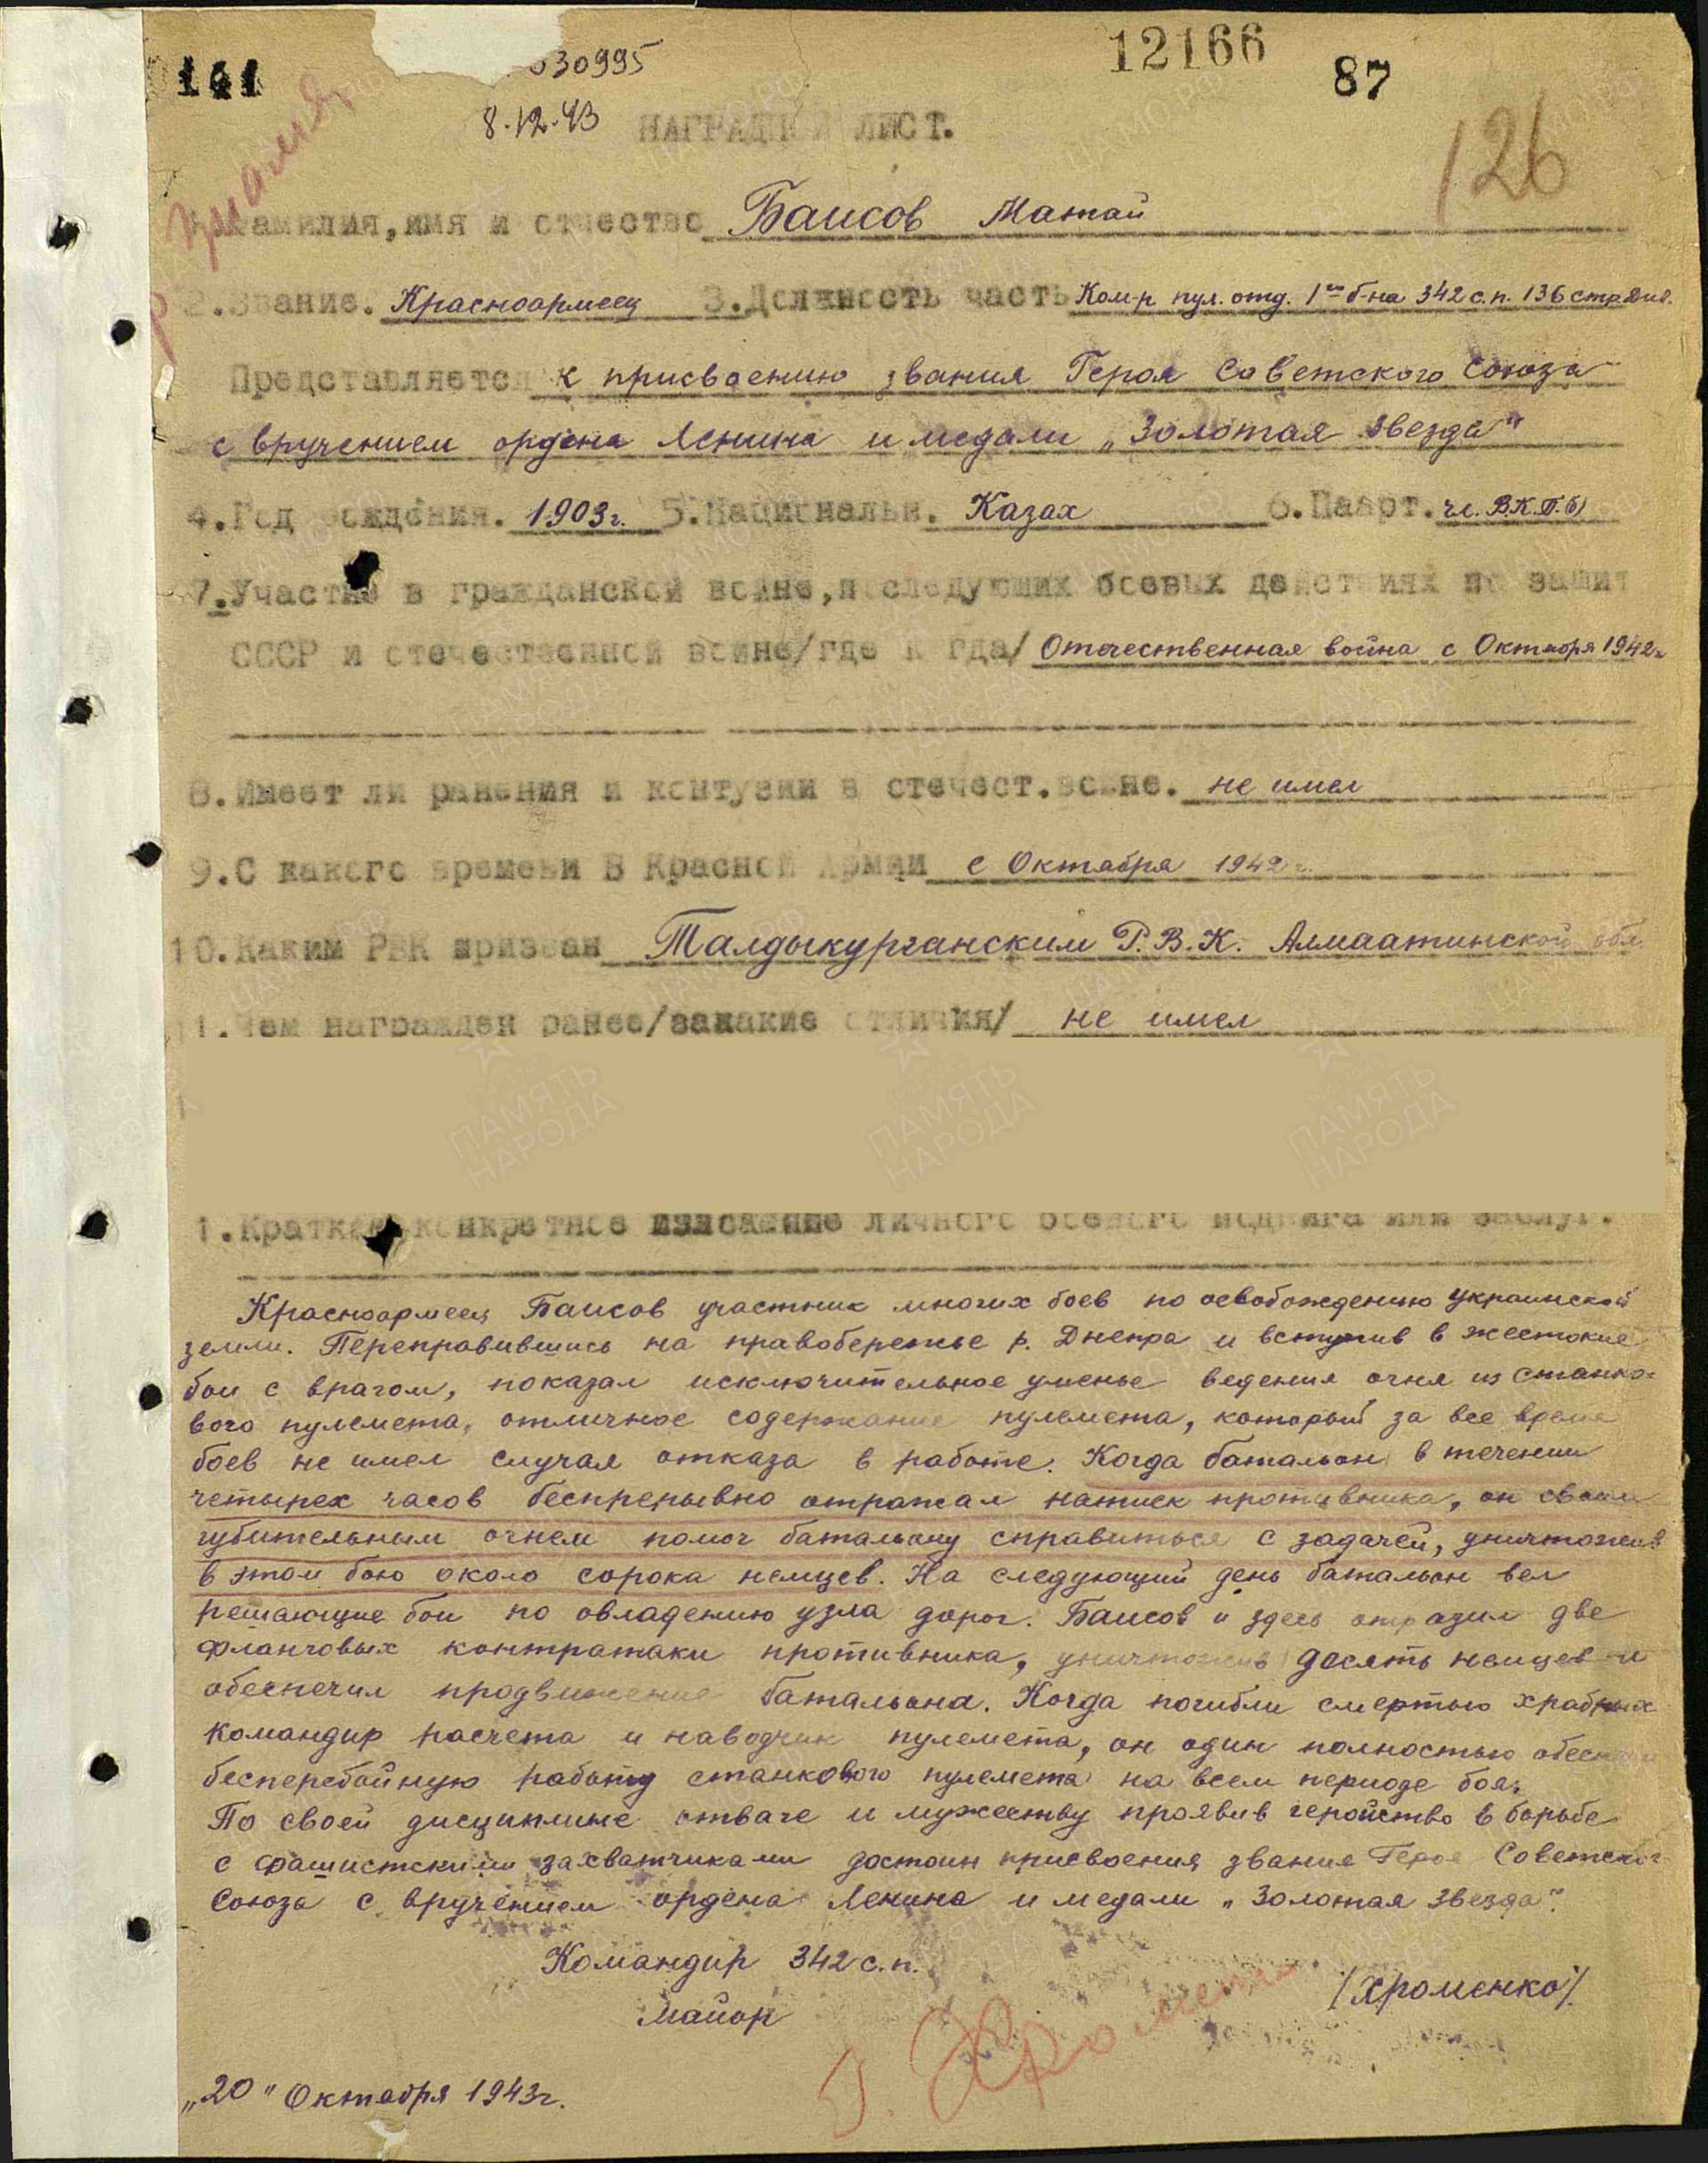 141
030995
12166
87
8.12.43
НАГРАДНОЙ ЛИСТ.
126
Фамилия, имя и отчество Баисов Матай
2. Звание. Красноармеец 3. Должность часть Ком-р пул. отд. 1го б-на 342 с.п. 136 стр. див.
Представляется к присвоению звания Героя Советского Союза
с вручением ордена Ленина и медали „Золотая Звезда"
4. Год рождения. 1903 г. 5. Национальн. Казах 6. Паарт. чл. В.К.П.(б)
7. Участие в гражданской войне, последующих боевых действиях по защит
СССР и отечественной войне/где когда/ Отечественная война с Октября 1942г.
8. Имеет ли ранения и контузии в отечест. войне. не имел
9. С какого времени в Красной Армии с Октября 1942 г.
10. Каким РВК призван Талдыкурганским Р.В.К. Алмаатинской обл.
11. Чем награжден ранее/закакие отличия/ не имел
ПАМЯТЬ НАРОДА
1. Краткое конкретное изложение личного боевого подвига или заслуг.
Красноармеец Баисов участник многих боев по освобождению украинской
земли. Переправившись на правобережье р. Днепра и вступив в жестокие
бои с врагом, показал исключительное уменье ведения огня из станко-
вого пулемета, отличное содержание пулемета, который за все время
боев не имел случая отказа в работе. Когда батальон в течении
четырех часов беспрерывно отражал натиск противника, он своим
губительным огнем помог батальону справиться с задачей, уничтожив
в этом бою около сорока немцев. На следующий день батальон вел
решающие бои по овладению узла дорог. Баисов и здесь отразил две
фланговых контратаки противника, уничтожив десять немцев и
обеспечил продвижение батальона. Когда погибли смертью храбрых
командир расчета и наводчик пулемета, он один полностью обеспечил
бесперебойную работу станкового пулемета на всем периоде боя.
По своей дисциплине отваге и мужеству проявив геройство в борьбе
с фашистскими захватчиками достоин присвоения звания Героя Советского
Союза с вручением ордена Ленина и медали „Золотая Звезда".
Командир 342 с.п.
Майор
/Хроменко/
„20" Октября 1943г.